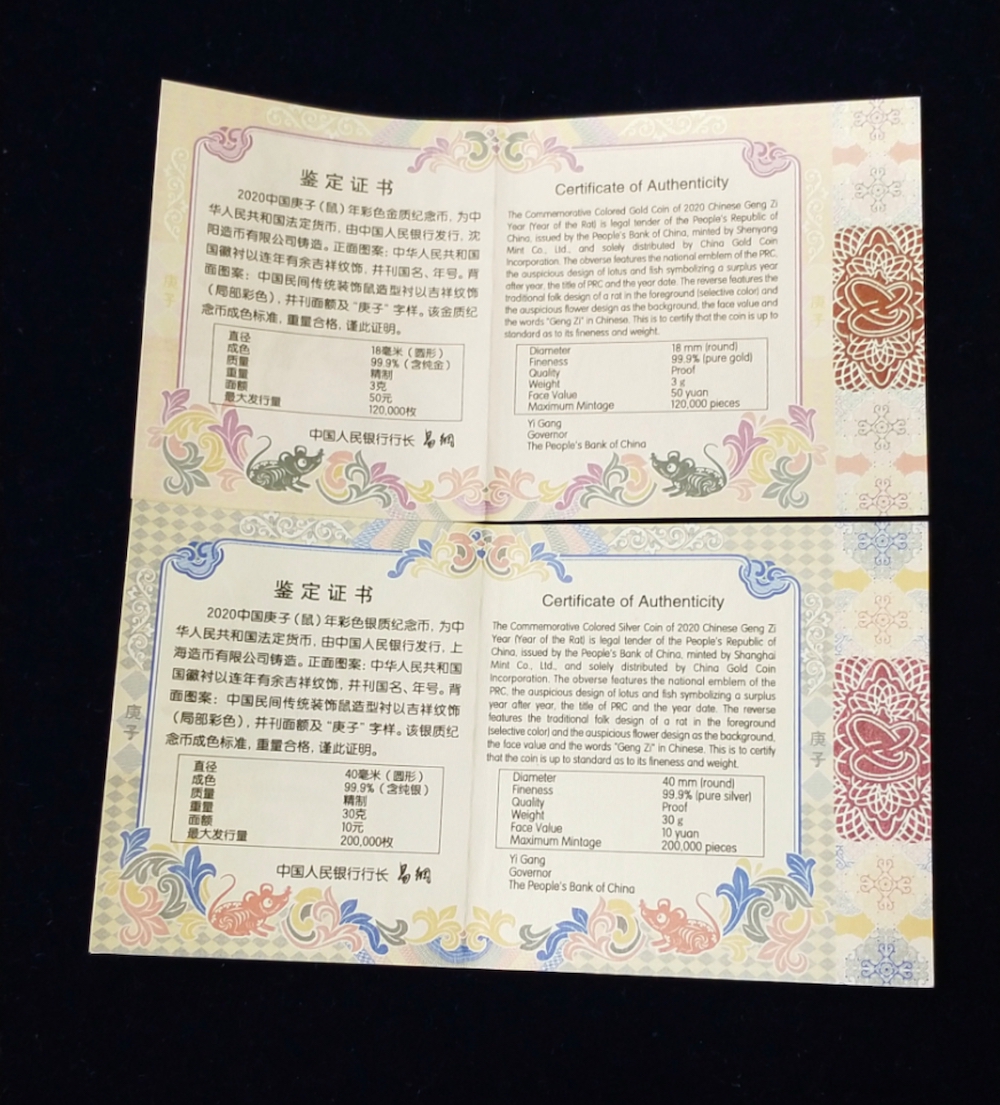 鉴定证书
2020中国庚子（鼠）年彩色金质纪念币，为中
华人民共和国法定货币，由中国人民银行发行，沈
阳造币有限公司铸造。正面图案：中华人民共和国
国徽衬以连年有余吉祥纹饰，并刊国名、年号。背
面图案：中国民间传统装饰鼠造型衬以吉祥纹饰
（局部彩色），并刊面额及“庚子”字样。该金质纪
念币成色标准，重量合格，谨此证明。
直径 18毫米（圆形）
成色 99.9%（含纯金）
质量 精制
重量 3克
面额 50元
最大发行量 120,000枚
中国人民银行行长 易纲
庚子
Certificate of Authenticity
The Commemorative Colored Gold Coin of 2020 Chinese Geng Zi
Year (Year of the Rat) is legal tender of the People's Republic of
China, issued by the People's Bank of China, minted by Shenyang
Mint Co., Ltd., and solely distributed by China Gold Coin
Incorporation. The obverse features the national emblem of the PRC,
the auspicious design of lotus and fish symbolizing a surplus year
after year, the title of PRC and the year date. The reverse features the
traditional folk design of a rat in the foreground (selective color) and
the auspicious flower design as the background, the face value and
the words "Geng Zi" in Chinese. This is to certify that the coin is up to
standard as to its fineness and weight.
Diameter 18 mm (round)
Fineness 99.9% (pure gold)
Quality Proof
Weight 3 g
Face Value 50 yuan
Maximum Mintage 120,000 pieces
Yi Gang
Governor
The People's Bank of China
庚子
鉴定证书
2020中国庚子（鼠）年彩色银质纪念币，为中
华人民共和国法定货币，由中国人民银行发行，上
海造币有限公司铸造。正面图案：中华人民共和国
国徽衬以连年有余吉祥纹饰，并刊国名、年号。背
面图案：中国民间传统装饰鼠造型衬以吉祥纹饰
（局部彩色），并刊面额及“庚子”字样。该银质纪
念币成色标准，重量合格，谨此证明。
直径 40毫米（圆形）
成色 99.9%（含纯银）
质量 精制
重量 30克
面额 10元
最大发行量 200,000枚
中国人民银行行长 易纲
庚子
Certificate of Authenticity
The Commemorative Colored Silver Coin of 2020 Chinese Geng Zi
Year (Year of the Rat) is legal tender of the People's Republic of
China, issued by the People's Bank of China, minted by Shanghai
Mint Co., Ltd., and solely distributed by China Gold Coin
Incorporation. The obverse features the national emblem of the
PRC, the auspicious design of lotus and fish symbolizing a surplus
year after year, the title of PRC and the year date. The reverse
features the traditional folk design of a rat in the foreground
(selective color) and the auspicious flower design as the background,
the face value and the words "Geng Zi" in Chinese. This is to certify
that the coin is up to standard as to its fineness and weight.
Diameter 40 mm (round)
Fineness 99.9% (pure silver)
Quality Proof
Weight 30 g
Face Value 10 yuan
Maximum Mintage 200,000 pieces
Yi Gang
Governor
The People's Bank of China
庚子